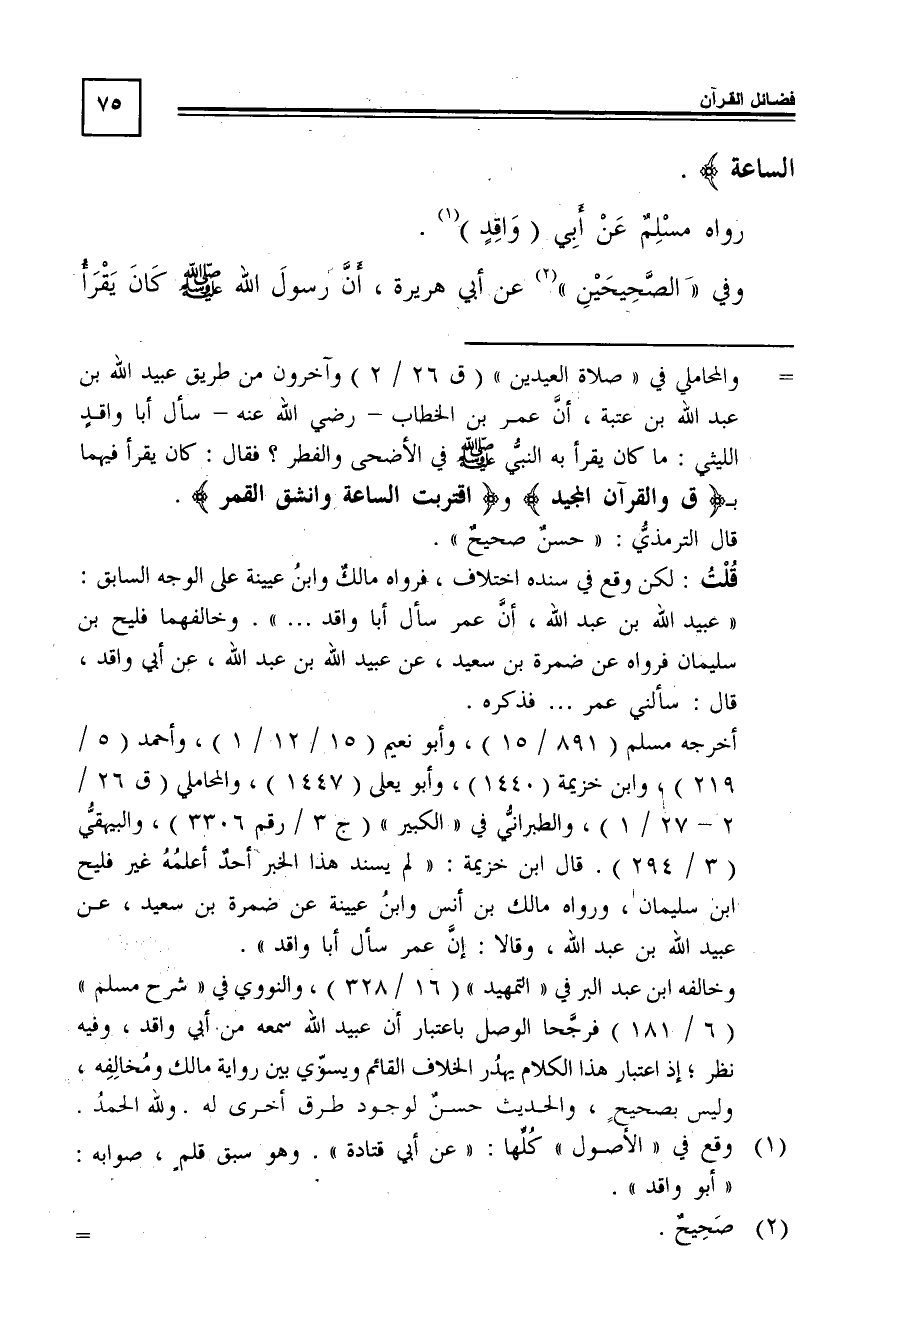 فضائل القرآن
٧٥
الساعة ﴾ .
رواه مسْلِمٌ عَنْ أَبِي ( وَاقِدٍ )(١) .
وفي « الصَّحِيحَيْنِ »(٢) عن أبي هريرة ، أَنَّ رسولَ الله ﷺ كَانَ يَقْرَأُ
= والمحاملي في « صلاة العيدين » ( ق ٢٦ / ٢ ) وآخرون من طريق عبيد الله بن
عبد الله بن عتبة ، أنَّ عمر بن الخطاب – رضي الله عنه – سأل أبا واقدٍ
الليثي : ما كان يقرأ به النبيُّ ﷺ في الأضحى والفطر ؟ فقال : كان يقرأ فيهما
بـ﴿ ق والقرآن المجيد ﴾ و﴿ اقتربت الساعة وانشق القمر ﴾ .
قال الترمذيُّ : « حسنٌ صحيحٌ » .
قُلْتُ : لكن وقع في سنده اختلاف ، فرواه مالكٌ وابنُ عيينة على الوجه السابق :
« عبيد الله بن عبد الله ، أنَّ عمر سأل أبا واقد ... » . وخالفهما فليح بن
سليمان فرواه عن ضمرة بن سعيد ، عن عبيد الله بن عبد الله ، عن أبي واقد ،
قال : سألني عمر ... فذكره .
أخرجه مسلم ( ٨٩١ / ١٥ ) ، وأبو نعيم ( ١٥ / ١٢ / ١ ) ، وأحمد ( ٥ /
٢١٩ ) ، وابن خزيمة ( ١٤٤٠ ) ، وأبو يعلى ( ١٤٤٧ ) ، والمحاملي ( ق ٢٦ /
٢ – ٢٧ / ١ ) ، والطبرانيُّ في « الكبير » ( ج ٣ / رقم ٣٣٠٦ ) ، والبيهقيُّ
( ٣ / ٢٩٤ ) . قال ابن خزيمة : « لم يسند هذا الخبر أحدٌ أعلمُهُ غير فليح
ابن سليمان ، ورواه مالك بن أنس وابنُ عيينة عن ضمرة بن سعيد ، عن
عبيد الله بن عبد الله ، وقالا : إنَّ عمر سأل أبا واقد » .
وخالفه ابن عبد البر في « التمهيد » ( ١٦ / ٣٢٨ ) ، والنووي في « شرح مسلم »
( ٦ / ١٨١ ) فرجَّحا الوصل باعتبار أن عبيد الله سمعه من أبي واقد ، وفيه
نظر ؛ إذ اعتبار هذا الكلام يهدُر الخلاف القائم ويسوّي بين رواية مالك ومُخالِفِه ،
وليس بصحيحٍ ، والحديث حسنٌ لوجود طرق أخرى له . ولله الحمدُ .
(١) وقع في « الأصول » كُلِّها : « عن أبي قتادة » . وهو سبق قلمٍ ، صوابه :
« أبو واقد » .
(٢) صَحِيحٌ .
=